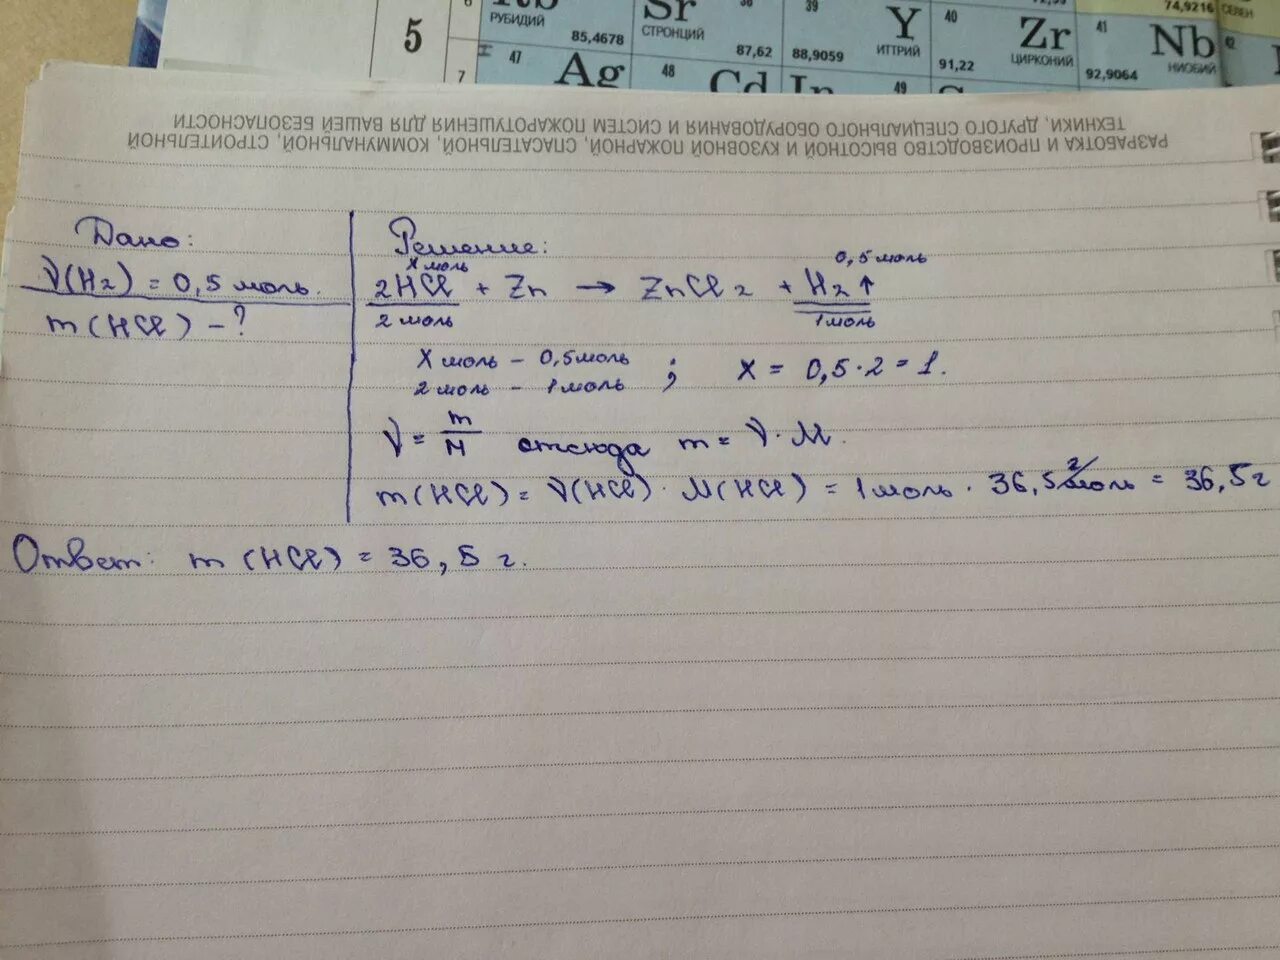 5
6
7
Rb
РУБИДИЙ
85,4678
Sr
СТРОНЦИЙ
87,62
39
Y
ИТТРИЙ
88,9059
40
Zr
ЦИРКОНИЙ
91,22
41
Nb
НИОБИЙ
92,9064
74,9216
42
47
Ag
48
Cd
In
49
РАЗРАБОТКА И ПРОИЗВОДСТВО ВЫСОТНОЙ И КУЗОВНОЙ ПОЖАРНОЙ, СПАСАТЕЛЬНОЙ, КОММУНАЛЬНОЙ, СТРОИТЕЛЬНОЙ
ТЕХНИКИ, ДРУГОГО СПЕЦИАЛЬНОГО ОБОРУДОВАНИЯ И СИСТЕМ ПОЖАРОТУШЕНИЯ ДЛЯ ВАШЕЙ БЕЗОПАСНОСТИ
Дано:
ν(H₂) = 0,5 моль.
m(HCl) – ?
Решение:
x моль 0,5 моль
2HCl + Zn → ZnCl₂ + H₂↑
2 моль 1 моль
X моль – 0,5 моль
2 моль – 1 моль ; X = 0,5 · 2 = 1.
ν = m/M отсюда m = ν · M.
m(HCl) = ν(HCl) · M(HCl) = 1 моль · 36,5 г/моль = 36,5 г
Ответ: m(HCl) = 36,5 г.